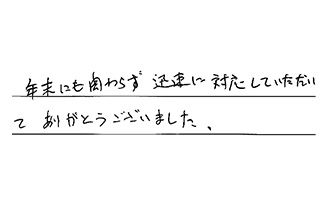 年末にも関わらず 迅速に 対応していただい
て ありがとうございました、